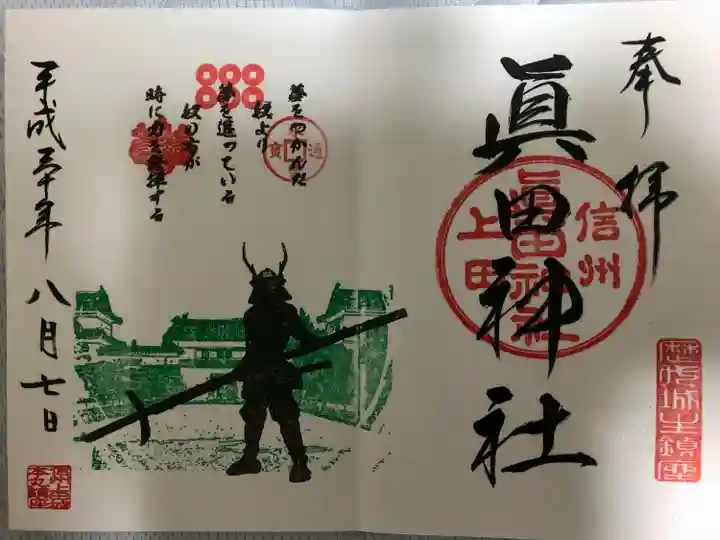 奉拝
眞田神社
信州
眞田神社
上田
歴代城主鎮座
夢をつかんだ
奴より
夢を追っている
奴の方が
時に力を発揮する
平成三十年八月七日